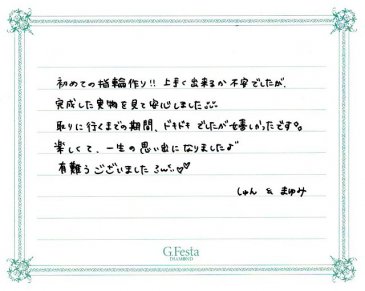 初めての指輪作り!! 上手く出来るか不安でしたが、
完成した実物を見て安心しました
取りに行くまでの期間、ドキドキでしたが嬉しかったです。
楽しくて、一生の思い出になりました♪
有難うございました ♡♡
しゅん & まゆみ
G.Festa
DIAMOND